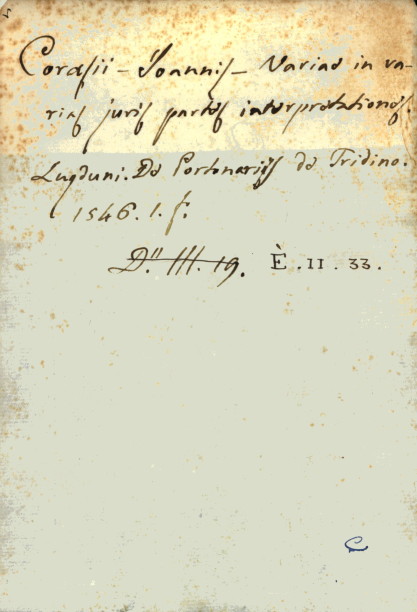 Corasii - Joannis - Variae in va-
rias juris partes interpretationes.
Lugduni. De Portonariis de Tridino.
1546. 1. f.
D.ⁿ III. 19. È . II . 33 .
C